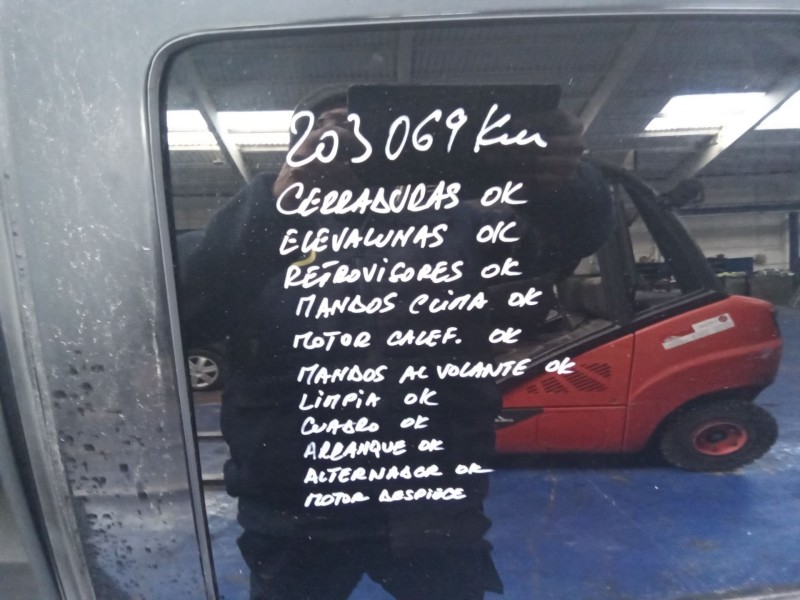 203069 Km
CERRADURAS OK
ELEVALUNAS OK
RETROVISORES OK
MANDOS CLIMA OK
MOTOR CALEF. OK
MANDOS AL VOLANTE OK
LIMPIA OK
CUADRO OK
ARRANQUE OK
ALTERNADOR OK
MOTOR DESPIECE